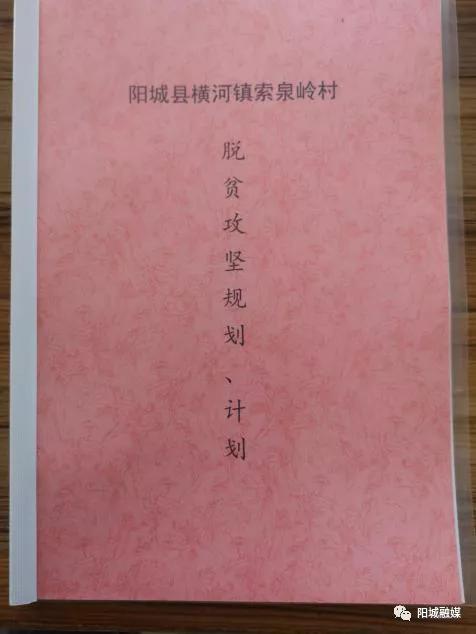 阳城县横河镇索泉岭村
脱贫攻坚规划、计划
阳城融媒